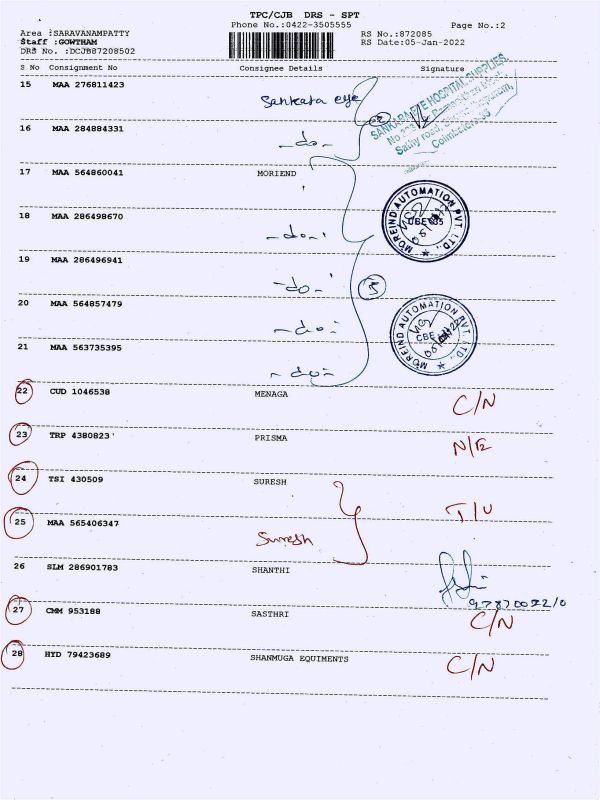 TPC/CJB DRS - SPT
Phone No.:0422-3505555 Page No.:2
Area :SARAVANAMPATTY RS No.:872085
Staff :GOWTHAM RS Date:05-Jan-2022
DRS No. :DCJB87208502
S No Consignment No Consignee Details Signature
15 MAA 276811423
Sankara eye
SANKARA EYE HOSPITAL SUPPLIES.
Sathy road,
Coimbatore-35
16 MAA 284884331
-do-
2
17 MAA 564860041 MORIEND
18 MAA 286498670
-do-
MOREIND AUTOMATION PVT. LTD.,
CBE-35
19 MAA 286496941
-do-
5
20 MAA 564857479
-do-
MOREIND AUTOMATION PVT. LTD.,
CBE
21 MAA 563735395
-do-
22 CUD 1046538 MENAGA C/N
23 TRP 4380823 PRISMA N/E
24 TSI 430509 SURESH T/U
25 MAA 565406347
Suresh
26 SLM 286901783 SHANTHI
27 CMM 953188 SASTHRI C/N
28 HYD 79423689 SHANMUGA EQUIMENTS C/N